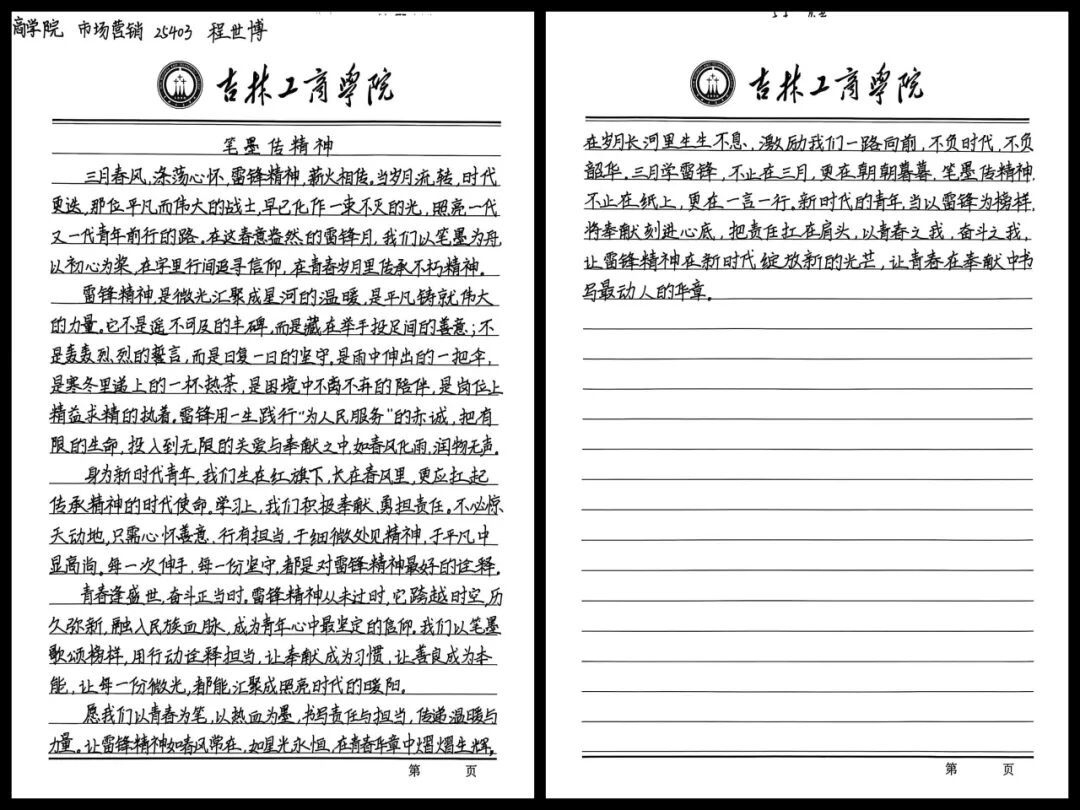 商学院 市场营销 25403 程世博
吉林工商学院
笔墨传精神
三月春风,涤荡心怀,雷锋精神,薪火相传。当岁月流转,时代
更迭,那位平凡而伟大的战士,早已化作一束不灭的光,照亮一代
又一代青年前行的路。在这春意盎然的雷锋月,我们以笔墨为舟,
以初心为桨,在字里行间追寻信仰,在青春岁月里传承不朽精神。
雷锋精神,是微光汇聚成星河的温暖,是平凡铸就伟大
的力量。它不是遥不可及的丰碑,而是藏在举手投足间的善意;不
是轰轰烈烈的誓言,而是日复一日的坚守。是雨中伸出的一把伞,
是寒冬里递上的一杯热茶,是困境中不离不弃的陪伴,是岗位上
精益求精的执着。雷锋用一生践行“为人民服务”的赤诚,把有
限的生命,投入到无限的关爱与奉献之中,如春风化雨,润物无声。
身为新时代青年,我们生在红旗下,长在春风里,更应扛起
传承精神的时代使命。学习上,我们积极奉献,勇担责任。不必惊
天动地,只需心怀善意,行有担当,于细微处见精神,于平凡中
显高尚。每一次伸手,每一份坚守,都是对雷锋精神最好的诠释。
青春逢盛世,奋斗正当时。雷锋精神从未过时,它跨越时空,历
久弥新,融入民族血脉,成为青年心中最坚定的信仰。我们以笔墨
歌颂榜样,用行动诠释担当,让奉献成为习惯,让善良成为本
能,让每一份微光,都能汇聚成照亮时代的暖阳。
愿我们以青春为笔,以热血为墨,书写责任与担当,传递温暖与
力量。让雷锋精神如春风常在,如星光永恒,在青春华章中熠熠生辉。
第 页
吉林工商学院
在岁月长河里生生不息,激励我们一路向前,不负时代,不负
韶华。三月学雷锋,不止在三月,更在朝朝暮暮,笔墨传精神,
不止在纸上,更在一言一行。新时代的青年,当以雷锋为榜样,
将奉献刻进心底,把责任扛在肩头,以青春之我,奋斗之我,
让雷锋精神在新时代绽放新的光芒,让青春在奉献中书
写最动人的华章。
第 页